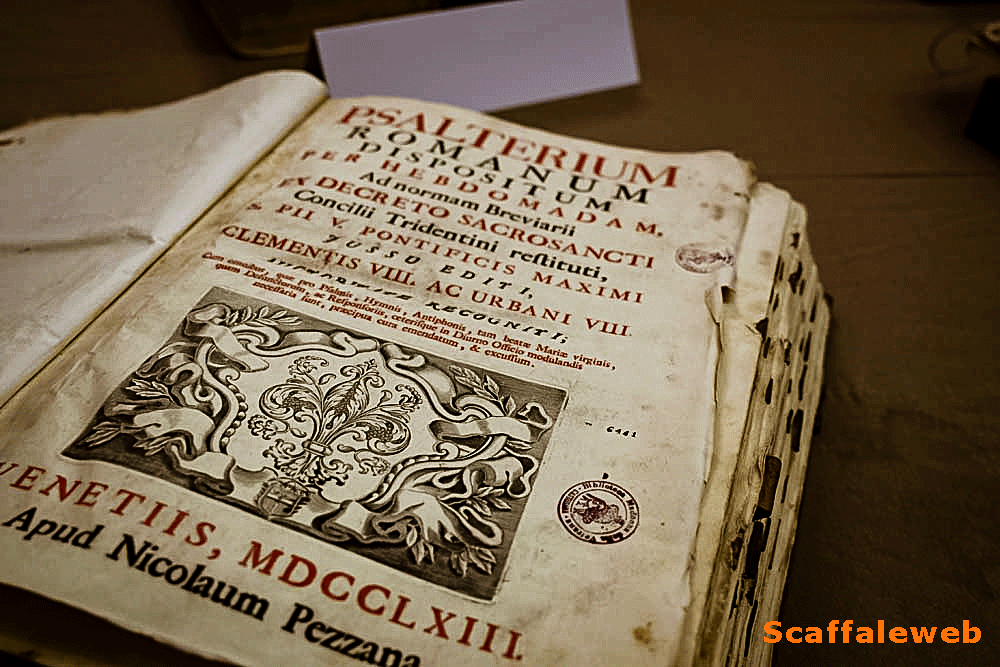 PSALTERIUM
ROMANUM
DISPOSITUM
PER HEBDOMADAM.
Ad normam Breviarii
EX DECRETO SACROSANCTI
Concilii Tridentini reſtituti,
S. PII V. PONTIFICIS MAXIMI
JUSSU EDITI,
CLEMENTIS VIII. AC URBANI VIII.
RECOGNITI,
Cum omnibus, quæ pro Pſalmis, Hymnis, Antiphonis, tam beatæ Mariæ virginis,
quam Defunctorum, ac Reſponſoriis, ceteriſque in Diurno Officio modulandis
neceſſaria ſunt, præcipua cura emendatum, & excuſſum.
6441
VENETIIS, MDCCLXIII.
Apud Nicolaum Pezzana
Scaffaleweb